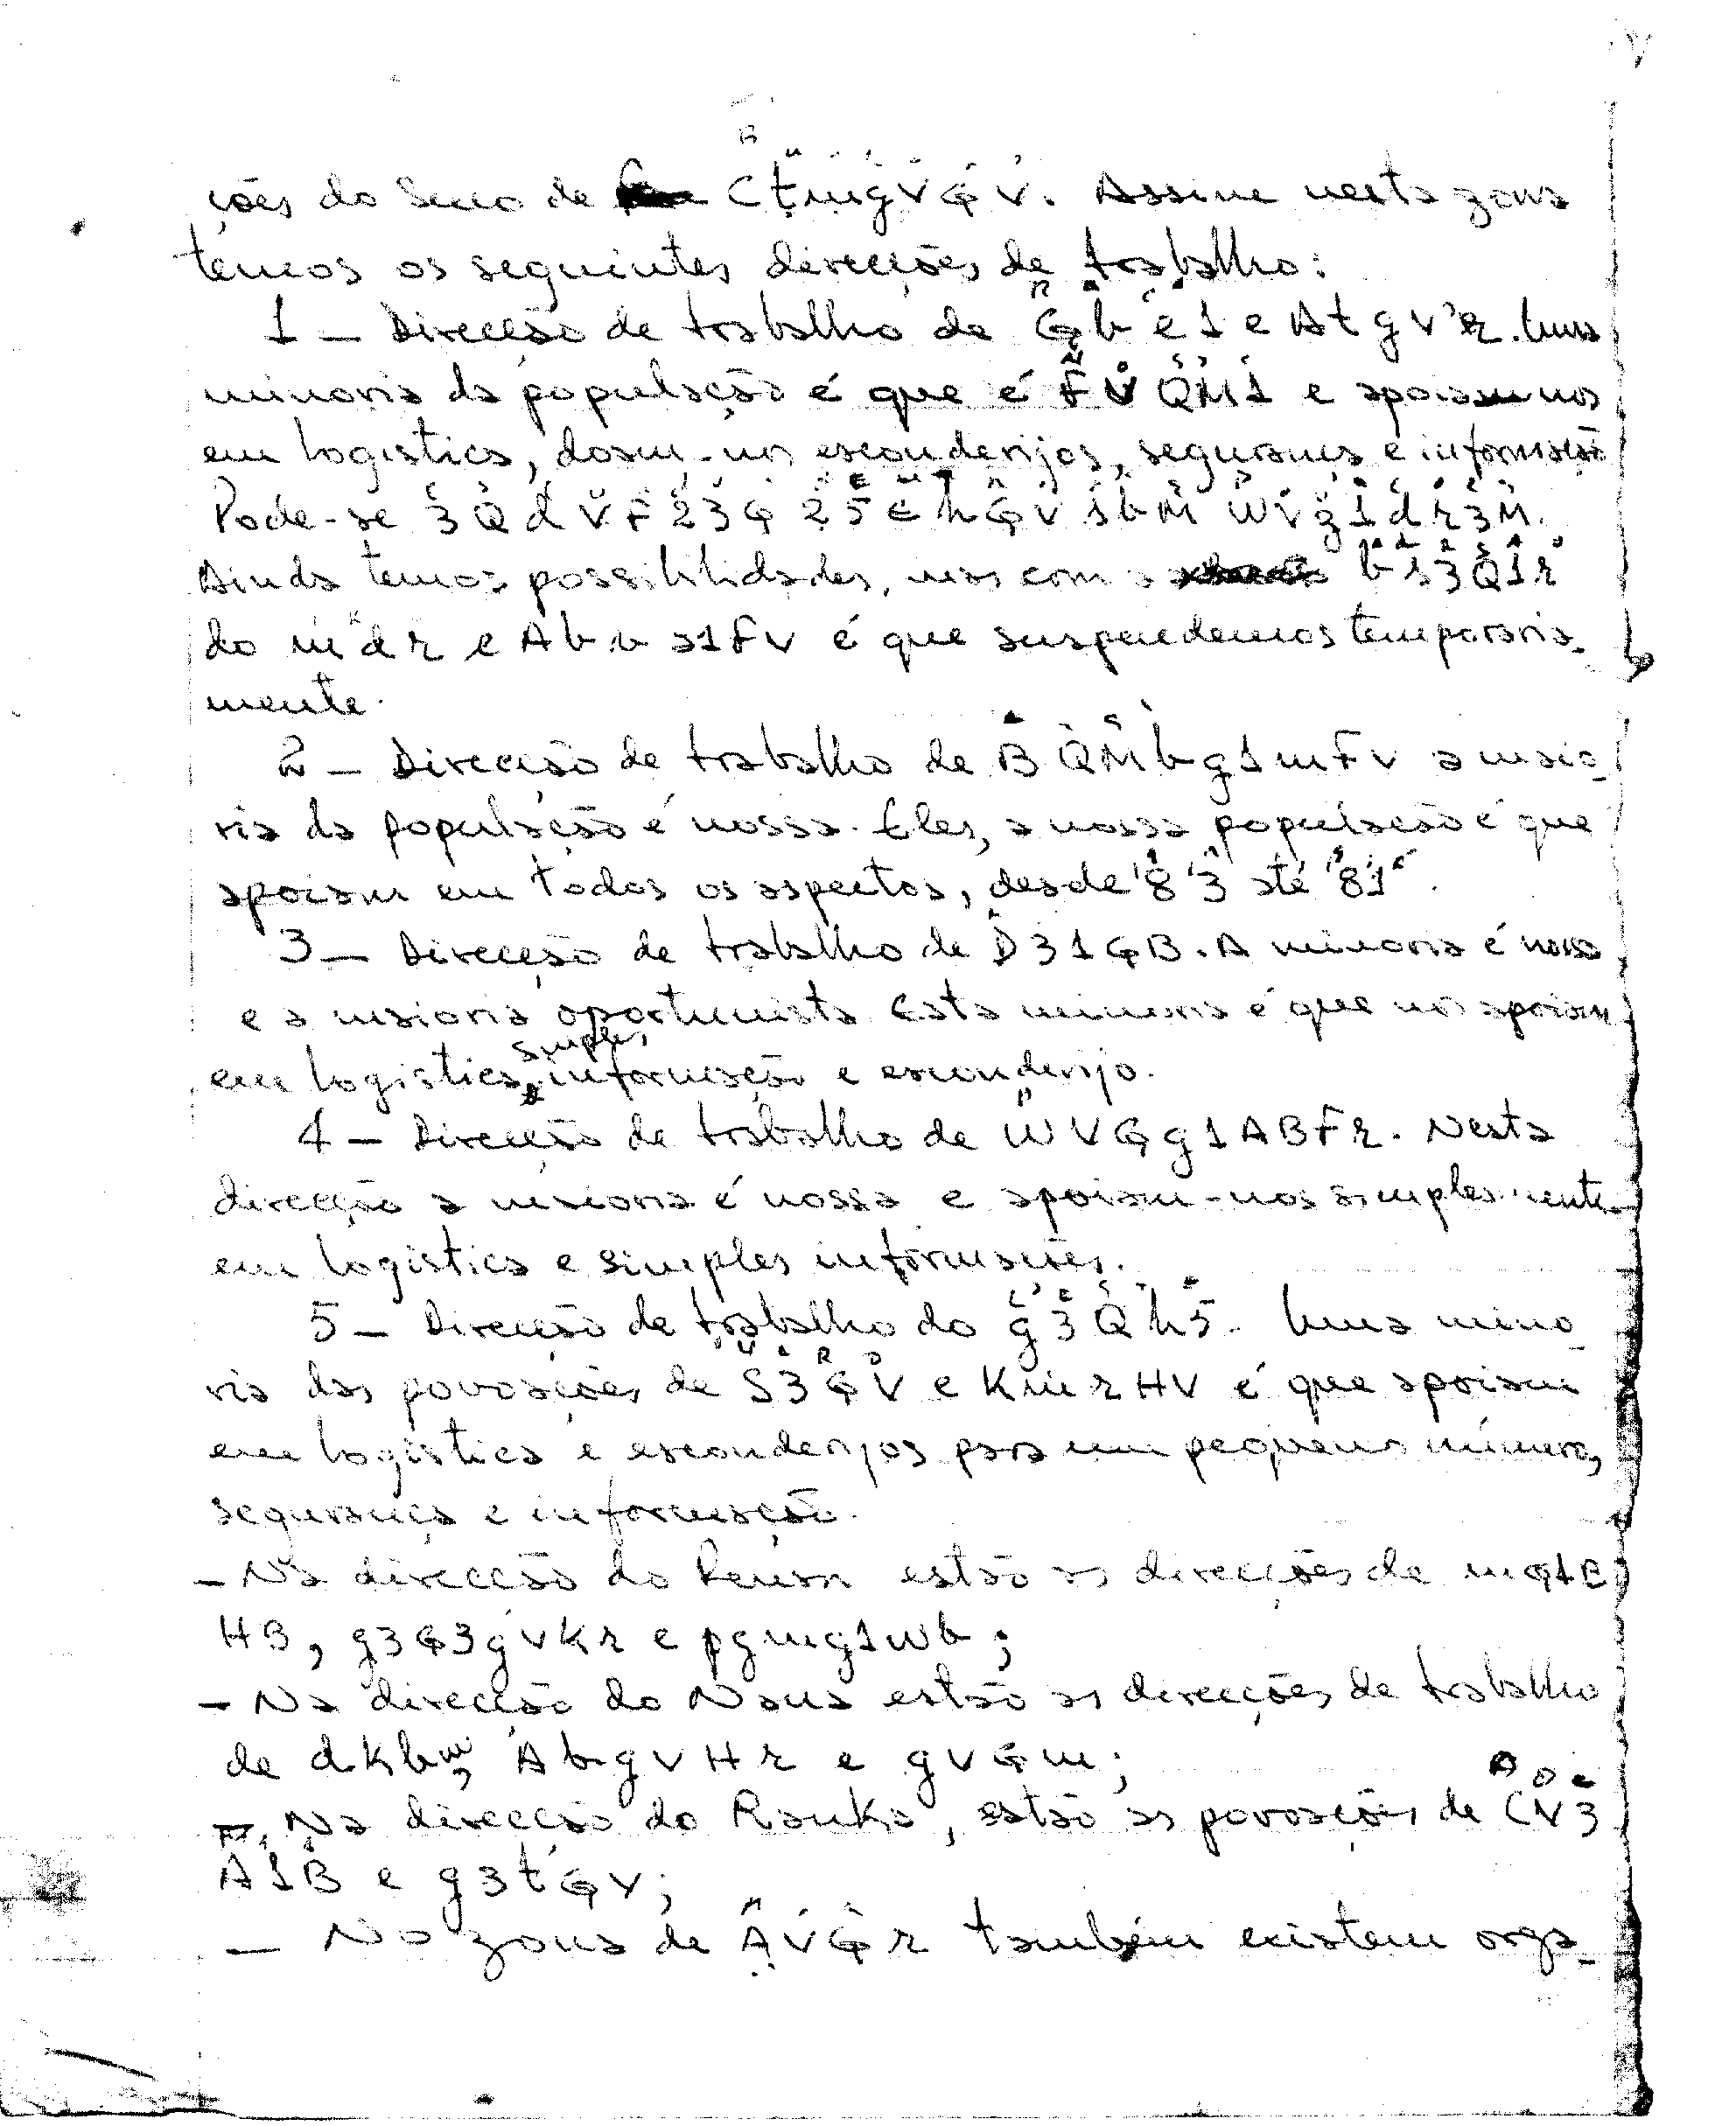 ções do Seuo de CtmgVQV. Assine nesta zona
temos os seguintes direcções de trabalho:
1 - Direcção de trabalho de Qbé1 e AtgVr. Uma
minoria da população é que é FVQM1 e apoiam nos
em logistica, dosm-nos esconderijos, segurança e informação
Pode-se 3QdVF23Q 25EhQV sbM WVg1dr3M.
Ainda temos possibilidades, mas com a bs3Q1r
do mdr e Abb a1FV é que suspendemos temporaria-
mente.
2 - Direcção de trabalho de BQMbg1mFV a maio-
ria da população é nossa. Eles, a nossa população é que
apoiam em todos os aspectos, desde '8'3 até '81'.
3 - Direcção de trabalho de D31QB. A minoria é nossa
e a maioria oportunista Esta minoria é que nos apoiam
em logistica, simples informação e esconderijo.
4 - Direcção de trabalho de WVQg1ABFr. Nesta
direcção a maioria é nossa e apoiam-nos simplesmente
em logistica e simples informações.
5 - Direcção de trabalho do g3Qh5. Uma mino-
ria das povoações de S3QV e KmrHV é que apoiam
em logistica e esconderijos para um pequeno número,
segurança e informação.
- Na direcção do estão as direcções de mQ1E
HB, g3Q3gVKr e pgmg1Wb;
- Na direcção do Naua estão as direcções de trabalho
de dKbm, AbgVHr e gVQm;
- Na direcção do Rauka, estão as povoações de CV3
A1B e g3tQV;
- No zona de AVQr também existem orga-